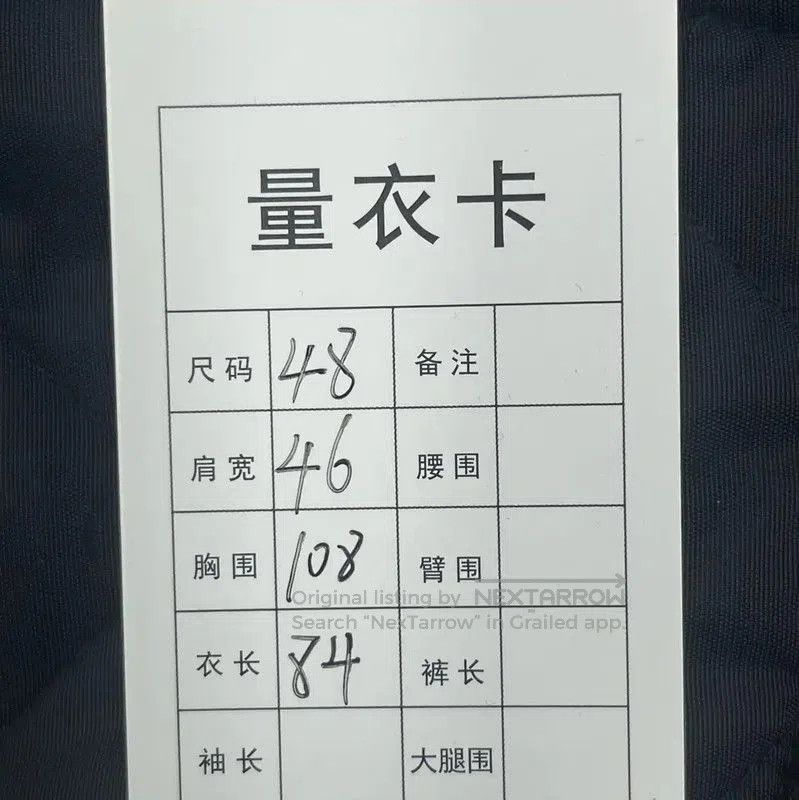 量衣卡
尺码 48 备注
肩宽 46 腰围
胸围 108 臂围
Original listing by NEXTARROW
Search "NexTarrow" in Grailed app.
衣长 84 裤长
袖长 大腿围